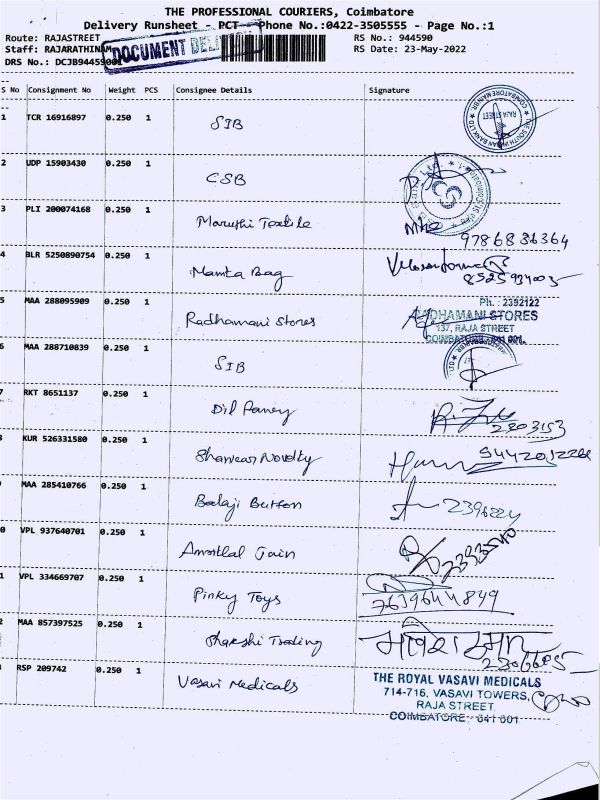 THE PROFESSIONAL COURIERS, Coimbatore
Delivery Runsheet - PCT - Phone No.:0422-3505555 - Page No.:1
Route: RAJASTREET RS No.: 944590
Staff: RAJARATHINAM DOCUMENT RS Date: 23-May-2022
DRS No.: DCJB9445900
S No Consignment No Weight PCS Consignee Details Signature
1 TCR 16916897 0.250 1 SIB THE SOUTH INDIAN BANK LTD RAJA STREET COIMBATORE
2 UDP 15903430 0.250 1 CSB
3 PLI 200074168 0.250 1 Maruthi Textile
9786836364
4 BLR 5250890754 0.250 1 Mamta Bag
5 MAA 288095909 0.250 1 Radhamani Stores
Ph.: 2392122
RADHAMANI STORES
137, RAJA STREET
COIMBATORE 641 001.
6 MAA 288710839 0.250 1 SIB
RKT 8651137 0.250 1 Dil Paney
2303153
KUR 526331580 0.250 1 Shankar Novelty
MAA 285410766 0.250 1 Balaji Button
0 VPL 937640701 0.250 1 Amrutlal Jain
1 VPL 334669707 0.250 1 Pinky Toys
7639644849
2 MAA 857397525 0.250 1 Shakshi Trading
RSP 209742 0.250 1 Vasavi Medicals
THE ROYAL VASAVI MEDICALS
714-716, VASAVI TOWERS,
RAJA STREET
COIMBATORE - 641 001